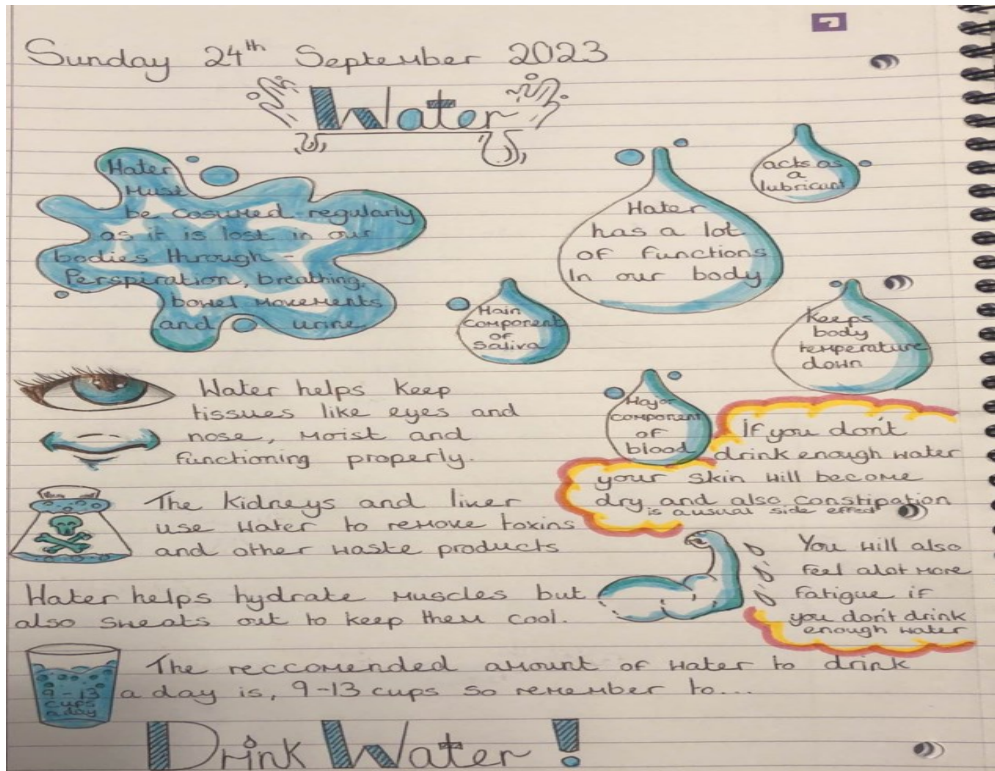 Sunday 24th September 2023
Water
Water
Must
be cosumed regularly
as it is lost in our
bodies through -
Perspiration, breathing,
bowel movements
and urine
Water
has a lot
of functions
In our body
acts as
a
lubricant
Main
component
of
Saliva
Keeps
body
temperature
down
Major
component
of
blood
Water helps keep
tissues like eyes and
nose, moist and
functioning properly.
If you don't
drink enough water
your skin will become
dry and also constipation
is a usual side effect
The kidneys and liver
use water to remove toxins
and other waste products
You will also
feel alot more
fatigue if
you don't drink
enough water
Water helps hydrate muscles but
also sweats out to keep them cool.
9-13
cups
a day
The reccomended amount of water to drink
a day is, 9-13 cups so remember to...
Drink Water!